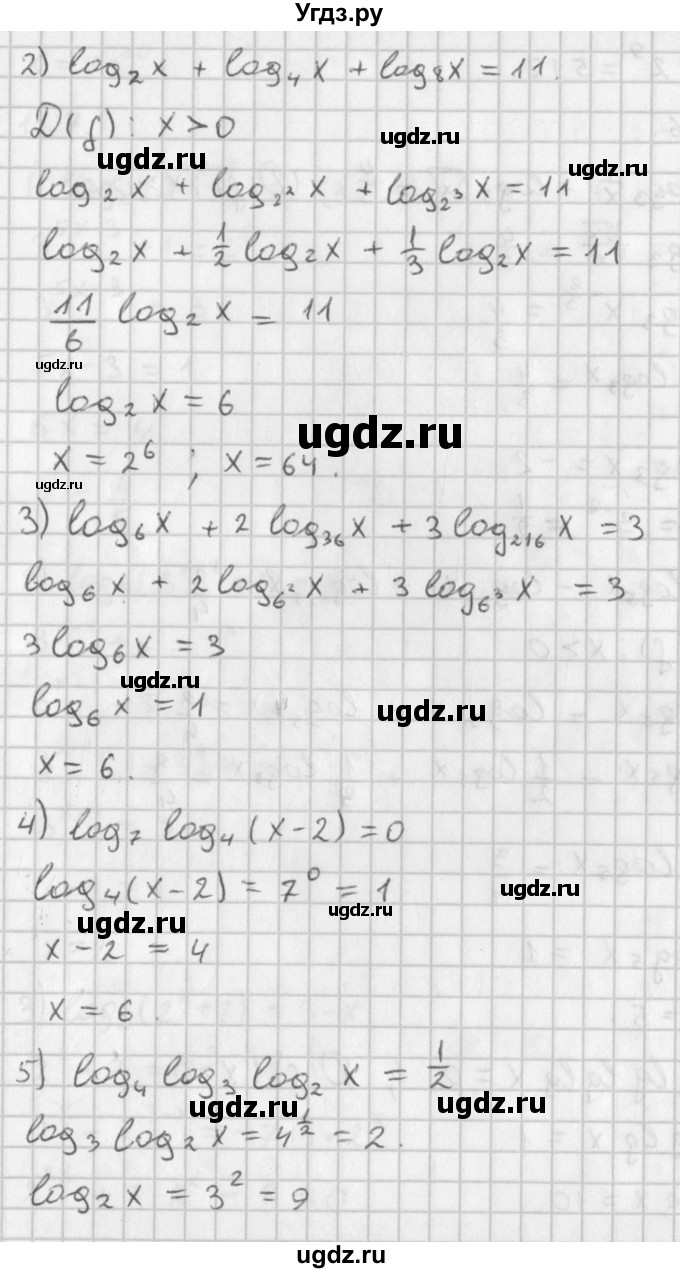 Угдз.ру
2) log₂x + log₄x + log₈x = 11.
D(f): x>0
ugdz.ru
ugdz.ru
ugdz.ru
log₂x + log_{2²}x + log_{2³}x = 11
log₂x + 1/2 log₂x + 1/3 log₂x = 11
11/6 log₂x = 11
ugdz.ru
log₂x = 6
ugdz.ru
x = 2⁶ ; x = 64.
ugdz.ru
3) log₆x + 2 log₃₆x + 3 log₂₁₆x = 3
log₆x + 2 log_{6²}x + 3 log_{6³}x = 3
3 log₆x = 3
ugdz.ru
log₆x = 1
ugdz.ru
x = 6.
4) log₇ log₄(x-2) = 0
log₄(x-2) = 7⁰ = 1
ugdz.ru
ugdz.ru
ugdz.ru
x - 2 = 4
x = 6.
5) log₄ log₃ log₂ x = 1/2
ugdz.ru
ugdz.ru
log₃ log₂x = 4^{1/2} = 2.
log₂x = 3² = 9
ugdz.ru